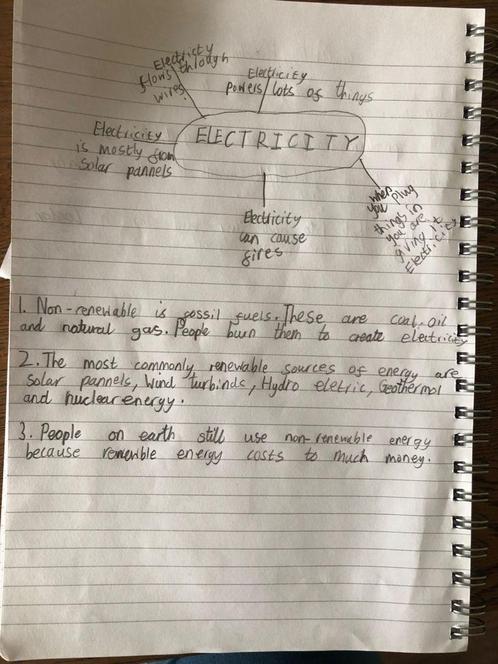 Electricty
flows thlodgh
wires
Electicity
powers lots of things
Electricity
is mostly from
solar pannels
ELECTRICITY
when
you plug
things in
you are
giving it
Electricity
Electricity
can cause
fires
1. Non-renewable is fossil fuels. These are coal, oil
and natural gas. People burn them to create electricity
2. The most commonly renewable sources of energy are
solar pannels, Wind turbinds, Hydro eletric, Geothermol
and nuclear energy.
3. People on earth still use non-renewable energy
because renewible energy costs to much money.